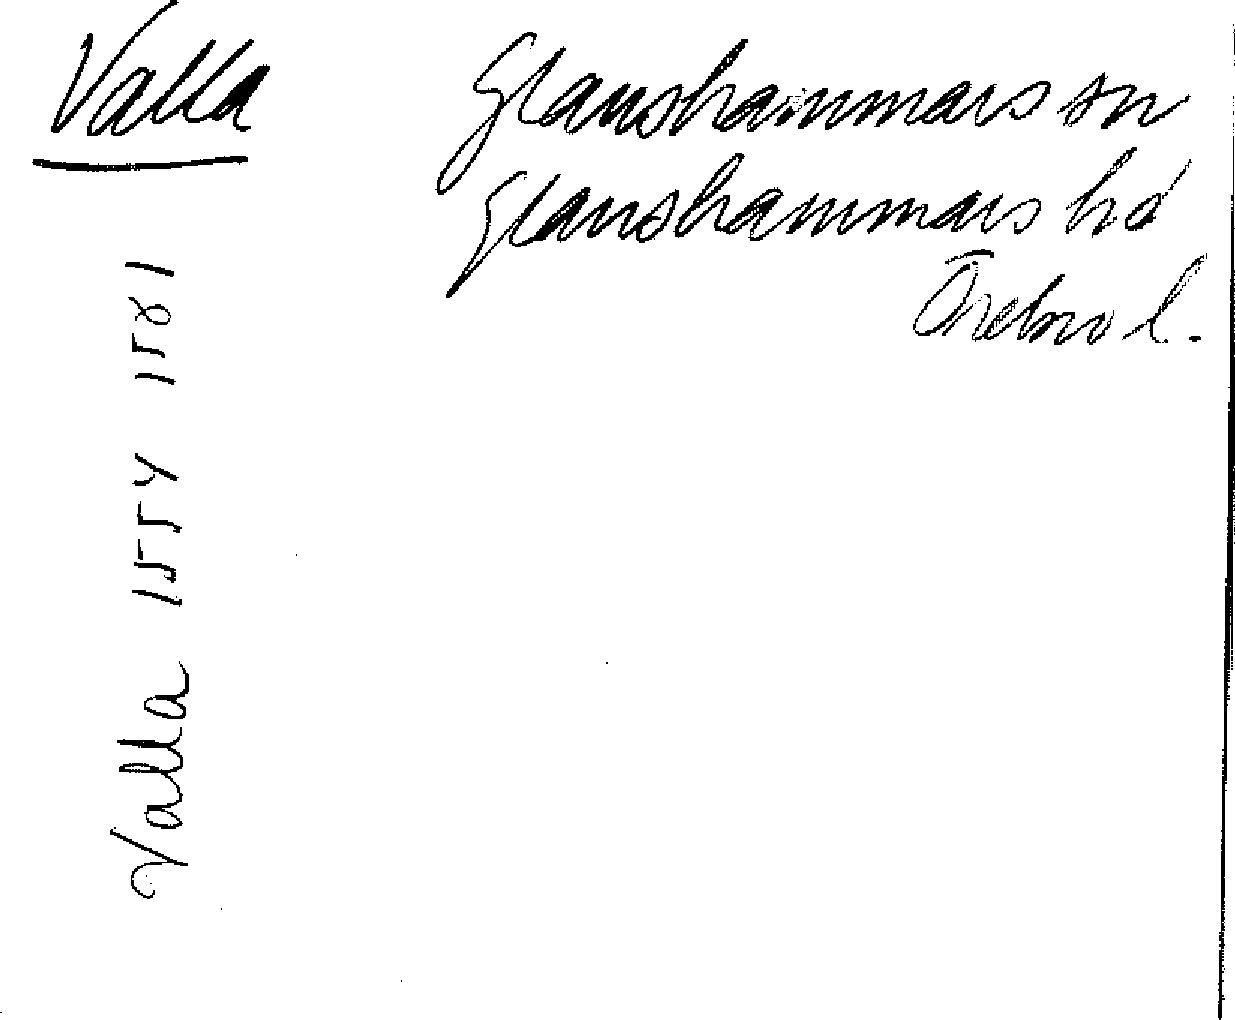 Valla
Glanshammars sn
Glanshammars hd
Örebro l.
Valla 1554 1581